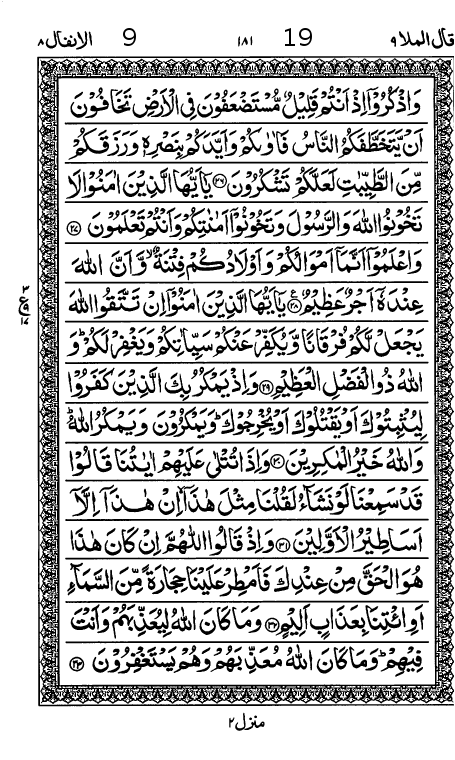 قال الملا ۹ 19 ۱۸۱ 9 الانفال ۸
وَاذْكُرُوْۤا اِذْ اَنْتُمْ قَلِیْلٌ مُّسْتَضْعَفُوْنَ فِی الْاَرْضِ تَخَافُوْنَ
اَنْ یَّتَخَطَّفَكُمُ النَّاسُ فَاٰوٰىكُمْ وَاَیَّدَكُمْ بِنَصْرِهٖ وَرَزَقَكُمْ
مِّنَ الطَّیِّبٰتِ لَعَلَّكُمْ تَشْكُرُوْنَ ۲۶ یٰۤاَیُّهَا الَّذِیْنَ اٰمَنُوْا لَا
تَخُوْنُوا اللّٰهَ وَالرَّسُوْلَ وَتَخُوْنُوْۤا اَمٰنٰتِكُمْ وَاَنْتُمْ تَعْلَمُوْنَ ۲۷
وَاعْلَمُوْۤا اَنَّمَاۤ اَمْوَالُكُمْ وَاَوْلَادُكُمْ فِتْنَةٌ ۙ وَّاَنَّ اللّٰهَ
عِنْدَهٗۤ اَجْرٌ عَظِیْمٌ ۲۸ یٰۤاَیُّهَا الَّذِیْنَ اٰمَنُوْۤا اِنْ تَتَّقُوا اللّٰهَ
یَجْعَلْ لَّكُمْ فُرْقَانًا وَّیُكَفِّرْ عَنْكُمْ سَیِّاٰتِكُمْ وَیَغْفِرْ لَكُمْ ؕ وَ
اللّٰهُ ذُو الْفَضْلِ الْعَظِیْمِ ۲۹ وَاِذْ یَمْكُرُ بِكَ الَّذِیْنَ كَفَرُوْا
لِیُثْبِتُوْكَ اَوْ یَقْتُلُوْكَ اَوْ یُخْرِجُوْكَ ؕ وَیَمْكُرُوْنَ وَیَمْكُرُ اللّٰهُ ؕ
وَاللّٰهُ خَیْرُ الْمٰكِرِیْنَ ۳۰ وَاِذَا تُتْلٰی عَلَیْهِمْ اٰیٰتُنَا قَالُوْا
قَدْ سَمِعْنَا لَوْ نَشَآءُ لَقُلْنَا مِثْلَ هٰذَاۤ ۙ اِنْ هٰذَاۤ اِلَّاۤ
اَسَاطِیْرُ الْاَوَّلِیْنَ ۳۱ وَاِذْ قَالُوا اللّٰهُمَّ اِنْ كَانَ هٰذَا
هُوَ الْحَقَّ مِنْ عِنْدِكَ فَاَمْطِرْ عَلَیْنَا حِجَارَةً مِّنَ السَّمَآءِ
اَوِ ائْتِنَا بِعَذَابٍ اَلِیْمٍ ۳۲ وَمَا كَانَ اللّٰهُ لِیُعَذِّبَهُمْ وَاَنْتَ
فِیْهِمْ ؕ وَمَا كَانَ اللّٰهُ مُعَذِّبَهُمْ وَهُمْ یَسْتَغْفِرُوْنَ ۳۳
منزل ۲